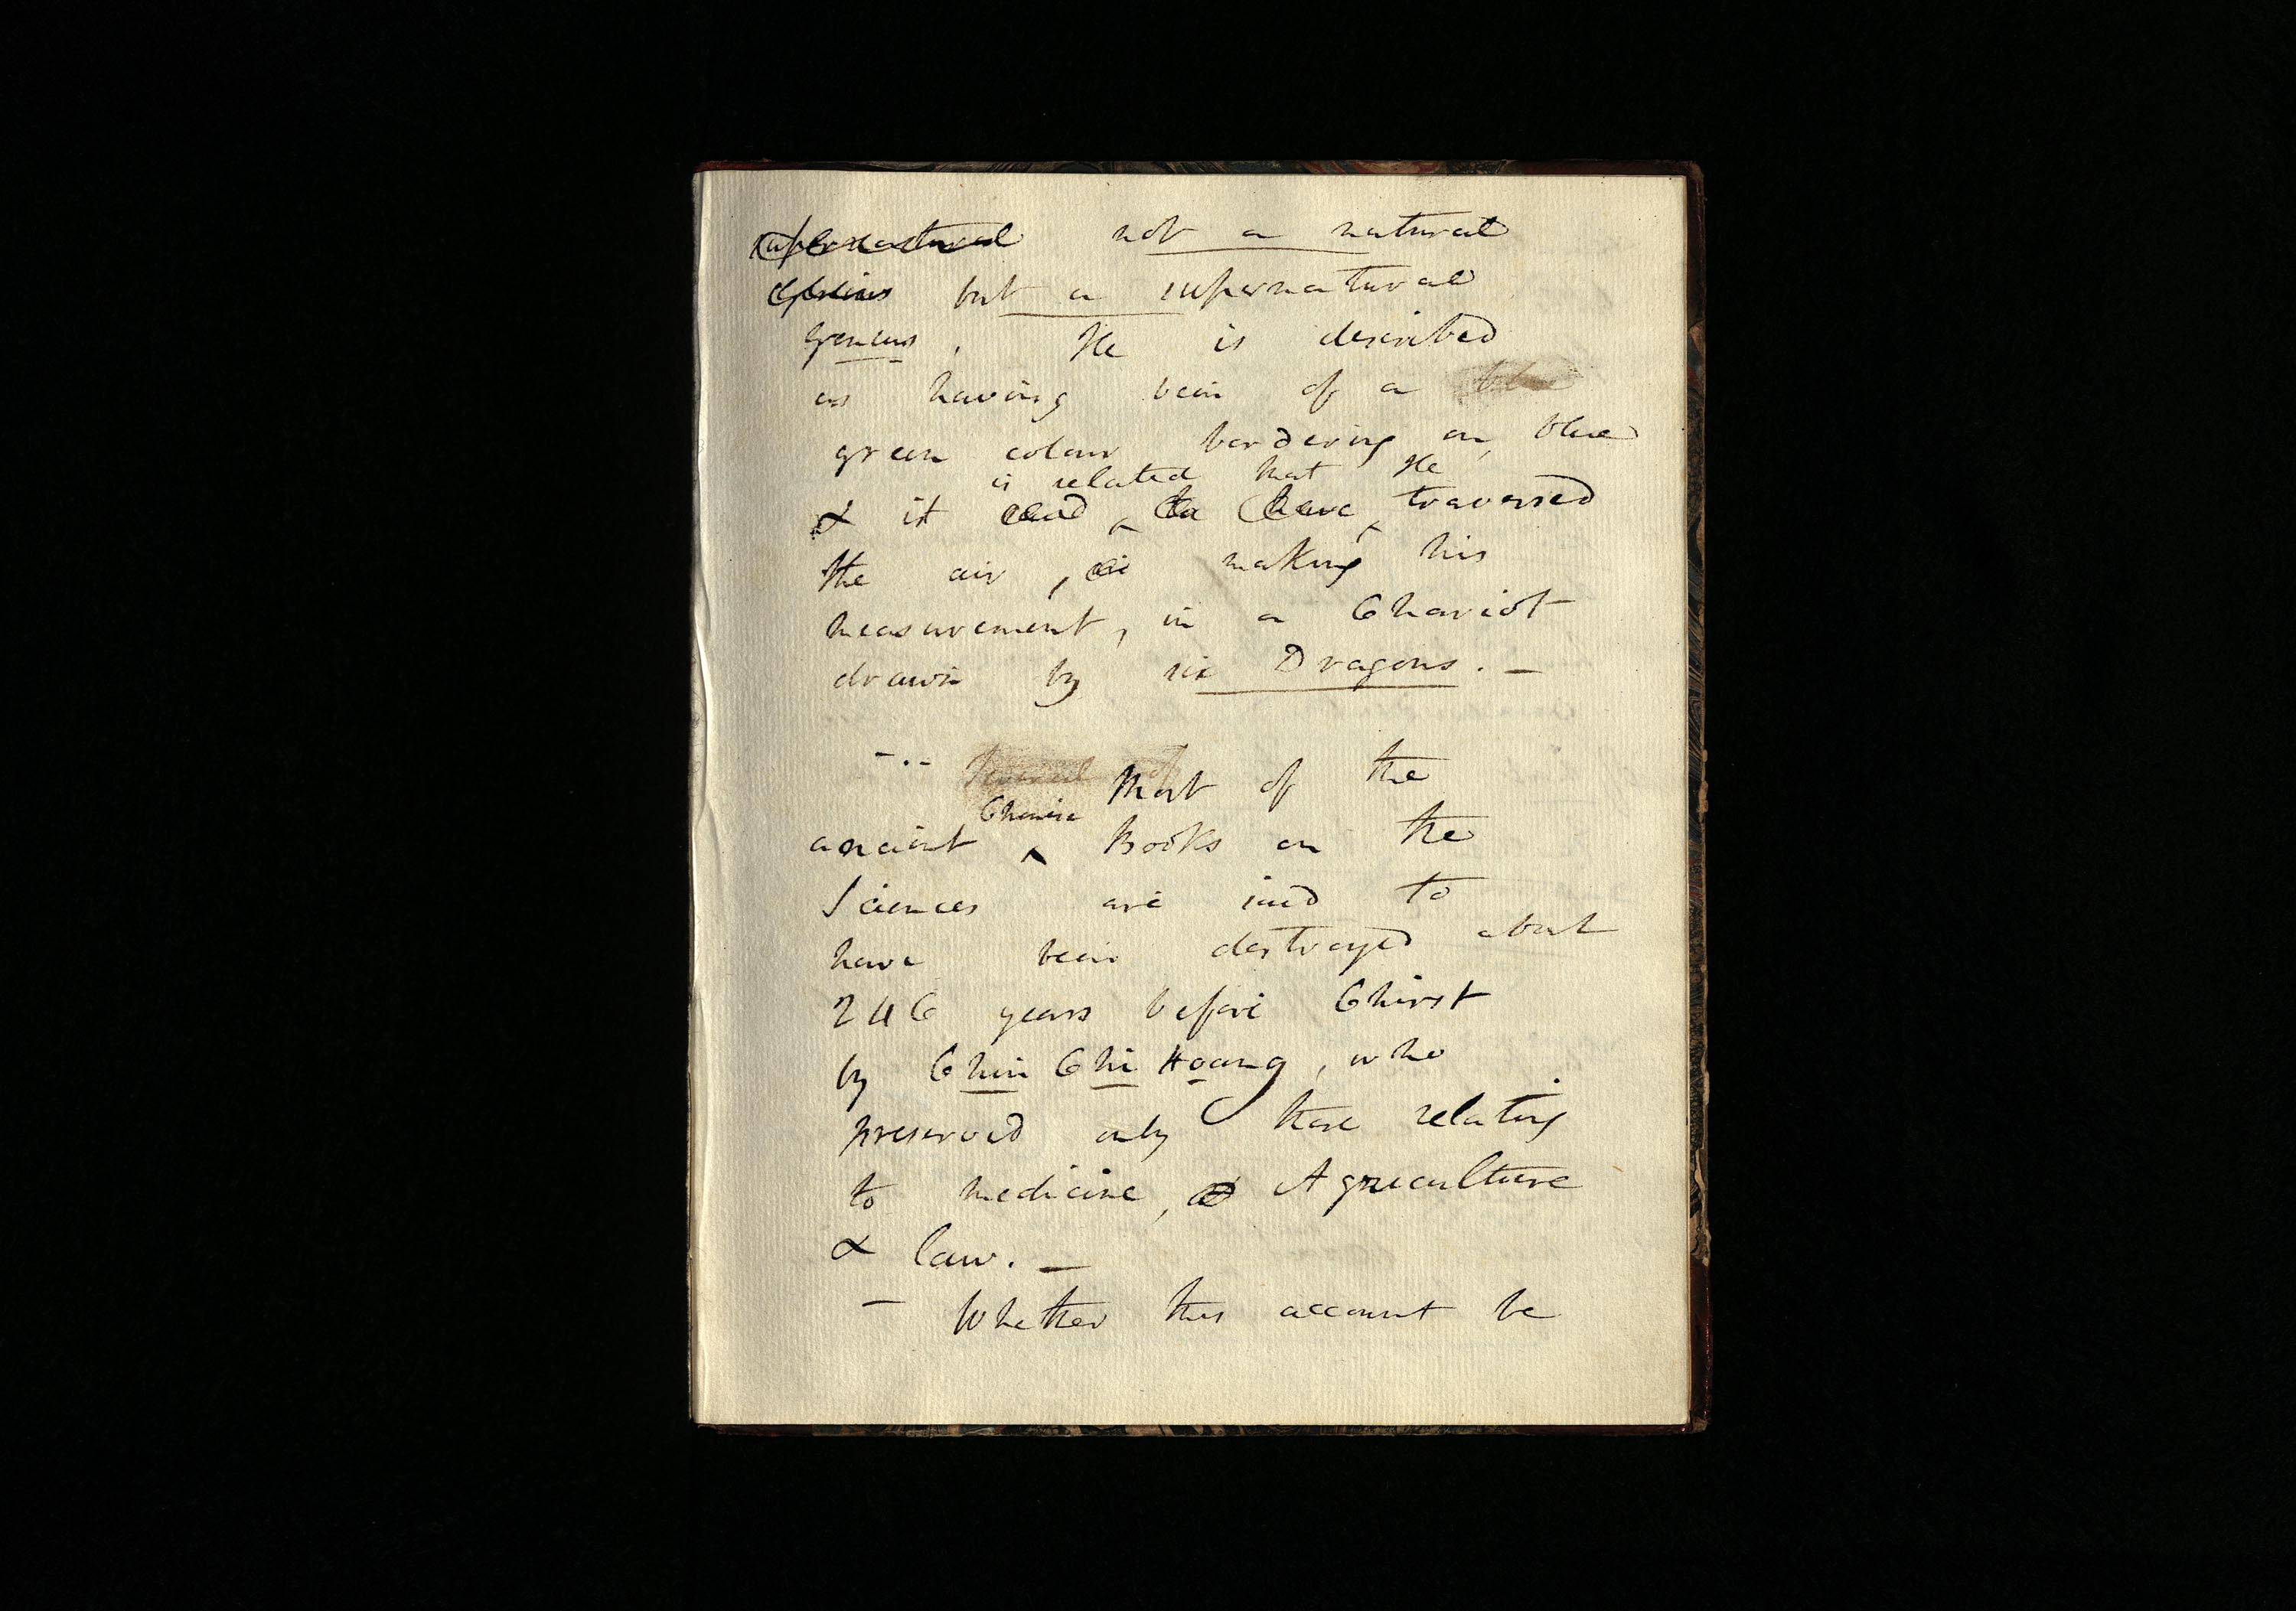 supernatural not a natural
genius but a supernatural
genius. He is described
as having been of a blue
green colour bordering on blue
is related that He
& it said to have traversed
the air, in making his
measurement, in a Chariot
drawn by six Dragons. —
-.. Several of Most of the
Chinese
ancient ^ Books on the
Sciences are said to
have been destroyed about
246 years before Christ
by Chin Chi Hoang, who
preserved only those relating
to medicine, Agriculture
& law. —
— Whether this account be